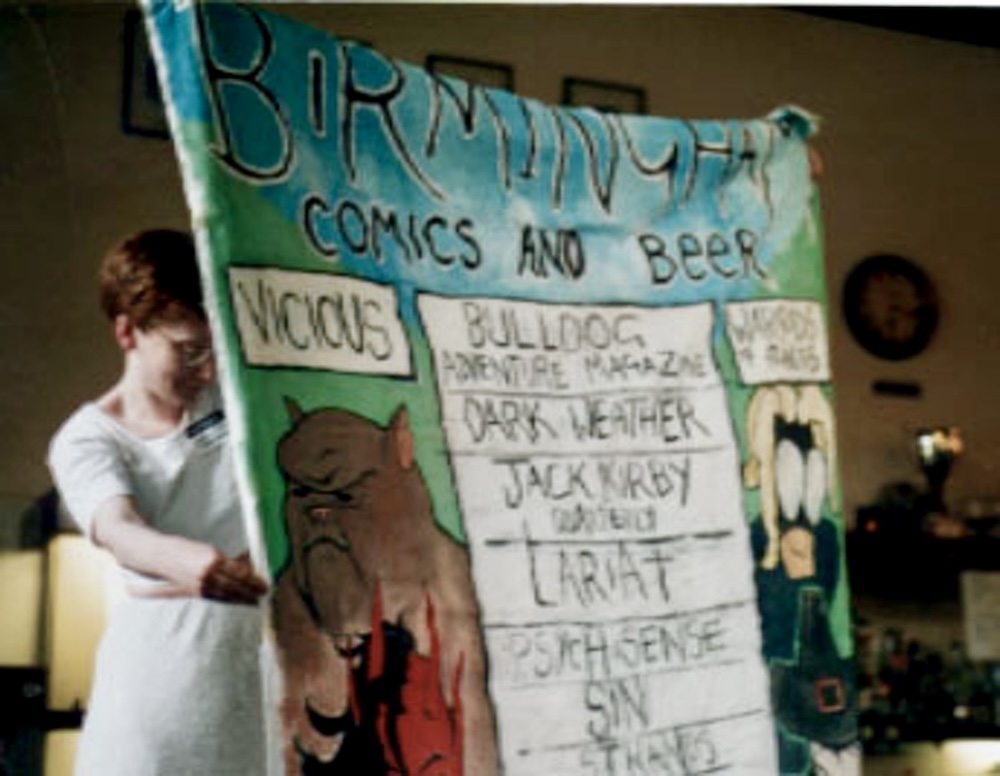 BIRMINGHAM
COMICS AND BEER
VICIOUS
BULLDOG
ADVENTURE MAGAZINE
DARK WEATHER
JACK KIRBY
QUARTERLY
LARIAT
PSYCHSENSE
SIN